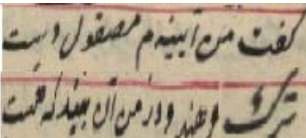 گفت من آیینه‌م مصقول دست
ترک و هند و در من آن بیند که هست